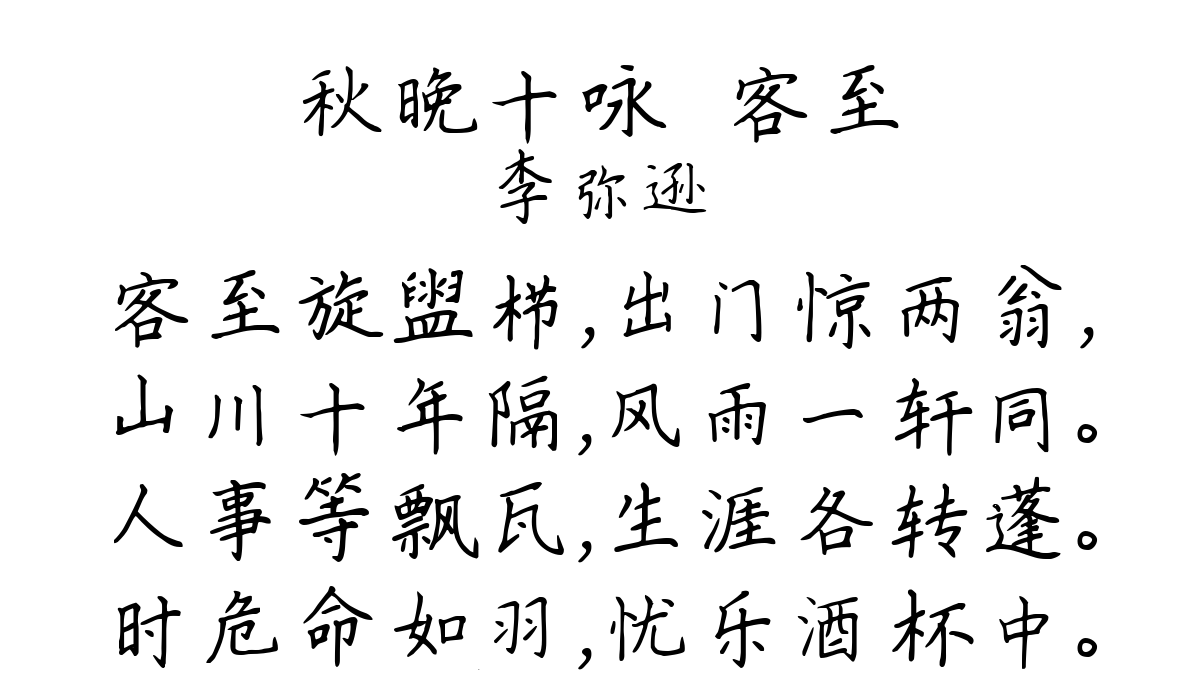 秋晚十咏 客至
李弥逊
客至旋盥栉,出门惊两翁,
山川十年隔,风雨一轩同。
人事等飘瓦,生涯各转蓬。
时危命如羽,忧乐酒杯中。